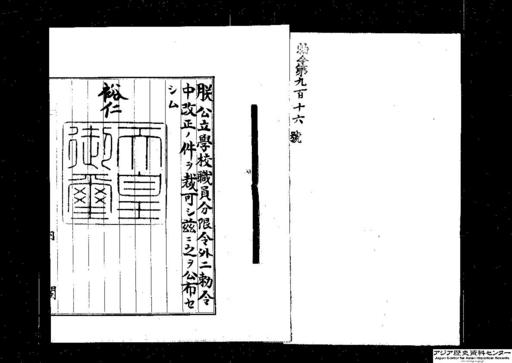 勅令第九百十六號
朕公立學校職員分限令外二勅令
中改正ノ件ヲ裁可シ茲ニ之ヲ公布セ
シム
裕仁
天皇
御璽
内閣
アジア歴史資料センター
Japan Center for Asian Historical Records